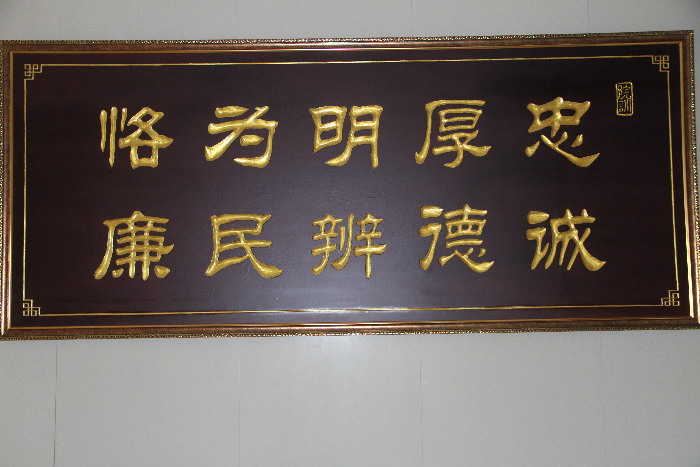 院训
忠诚
厚德
明辨
为民
恪廉